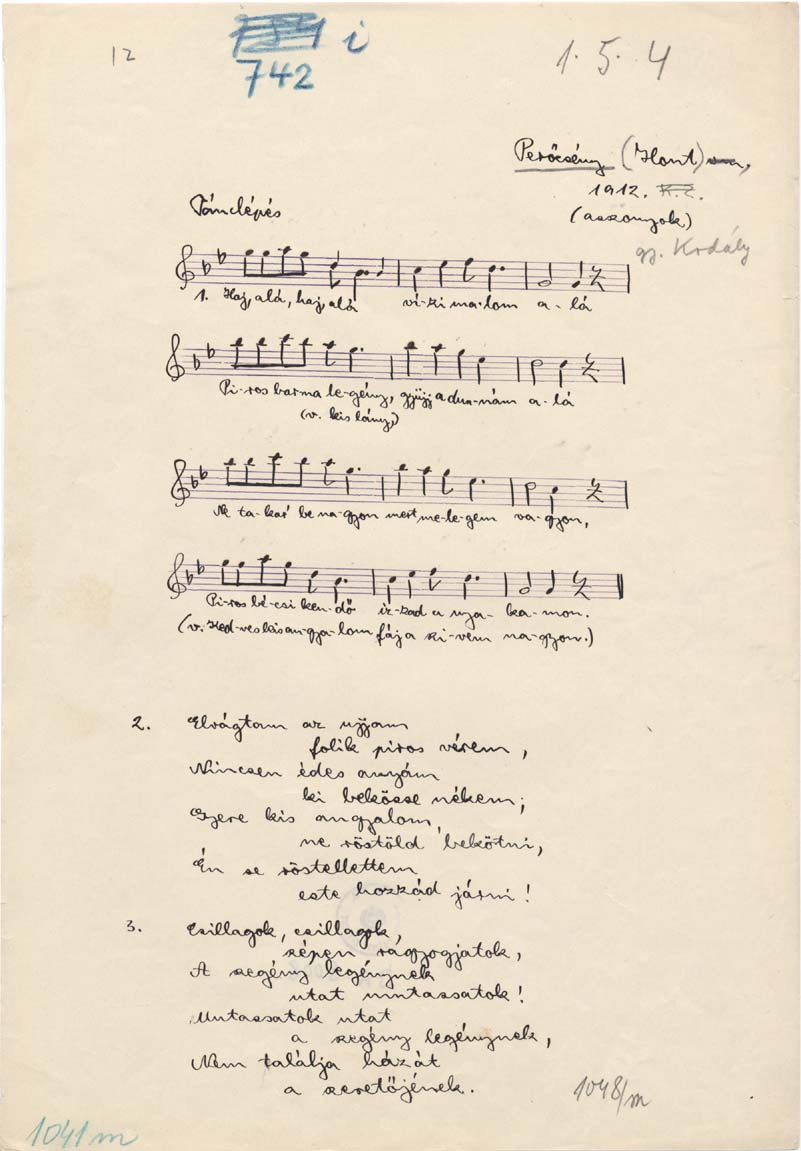 12
i
742
1. 5. 4
Perőcsény (Hont)
1912.
(asszonyok)
gy. Kodály
Tánclépés
1. Haj, alá, haj, alá vi-zi ma-lom a-lá
Pi-ros barna le-gény, gyüjj a dun-nám a-lá
(v. kis lány,)
Ne ta-kar' be na-gyon mert me-le-gem va-gyon,
Pi-ros bé-csi ken-dő iz-zad a nya-ka-mon.
(v. Ked-ves kis an-gya-lom fáj a szi-vem na-gyon.)
2. Elvágtam az ujjam
folik piros vérem,
Nincsen édes anyám
ki bekösse nékem;
Gyere kis angyalom,
ne röstöld bekötni,
Én se röstellettem
este hozzád járni!
3. Csillagok, csillagok,
szépen ragyogjatok,
A szegény legénynek
utat mutassatok!
Mutassatok utat
a szegény legénynek,
Nem találja házát
a szeretőjének.
1048/m
1041 m